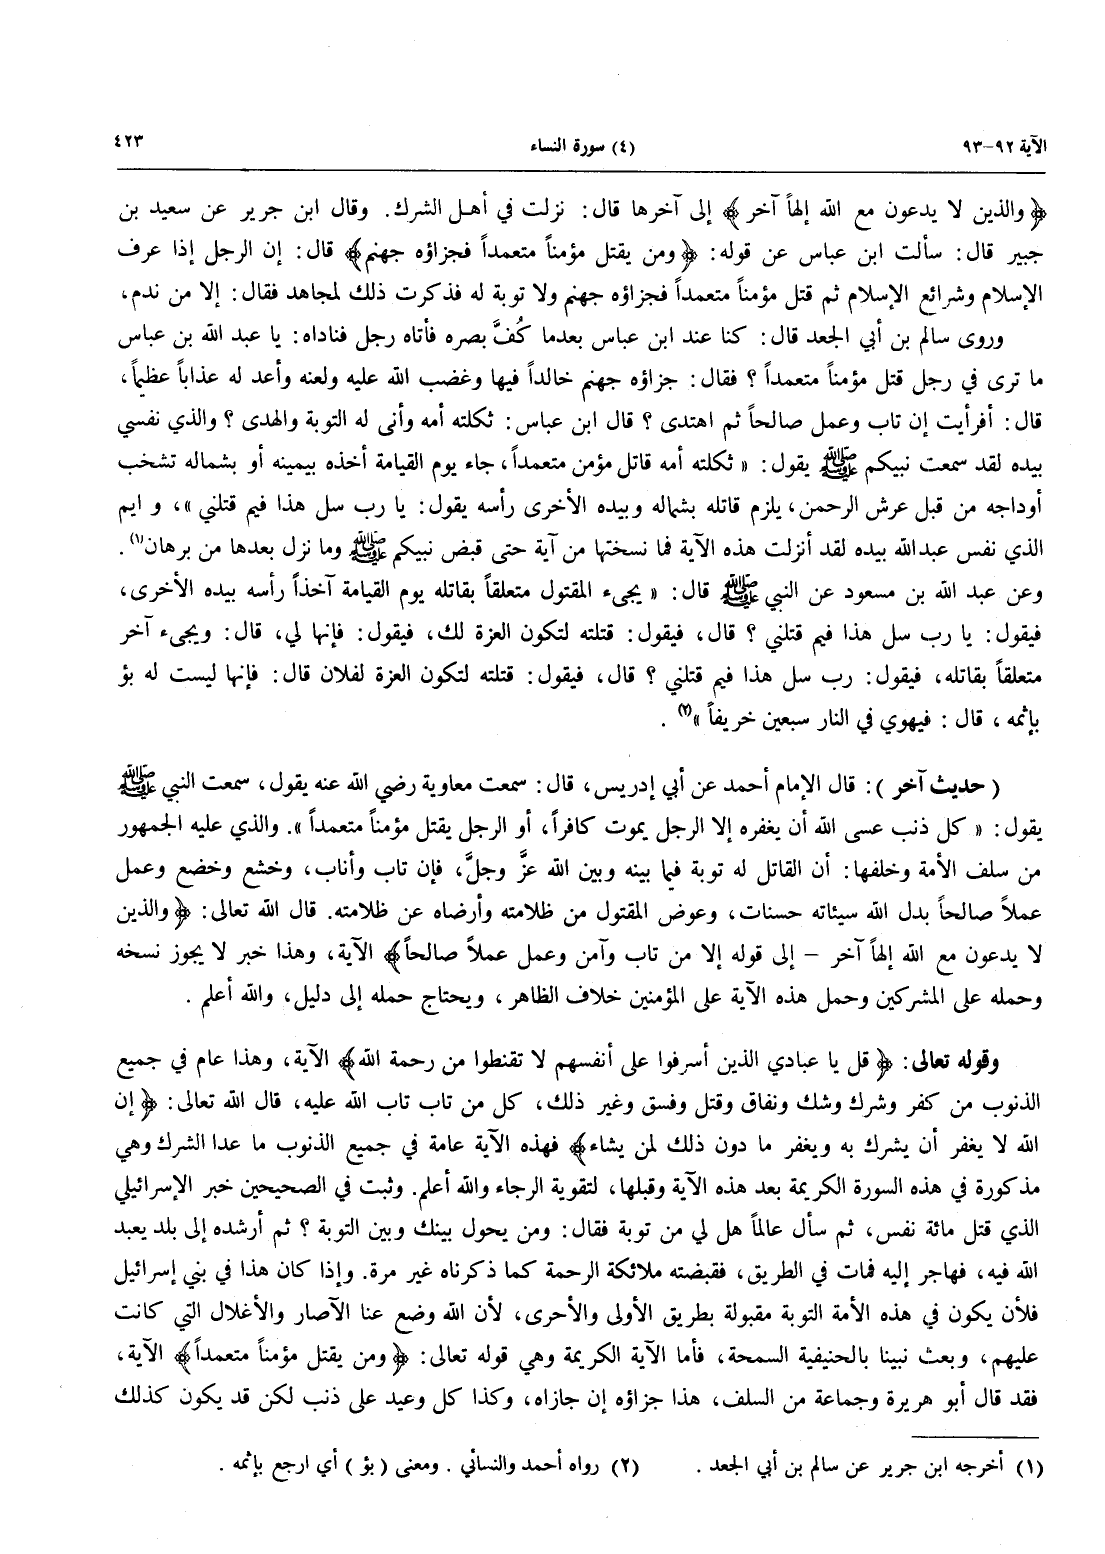 الآية ٩٢-٩٣ (٤) سورة النساء ٤٢٣
﴿والذين لا يدعون مع الله إلهاً آخر﴾ إلى آخرها قال: نزلت في أهل الشرك. وقال ابن جرير عن سعيد بن
جبير قال: سألت ابن عباس عن قوله: ﴿ومن يقتل مؤمناً متعمداً فجزاؤه جهنم﴾ قال: إن الرجل إذا عرف
الإسلام وشرائع الإسلام ثم قتل مؤمناً متعمداً فجزاؤه جهنم ولا توبة له فذكرت ذلك لمجاهد فقال: إلا من ندم،
وروى سالم بن أبي الجعد قال: كنا عند ابن عباس بعدما كُفَّ بصره فأتاه رجل فناداه: يا عبد الله بن عباس
ما ترى في رجل قتل مؤمناً متعمداً ؟ فقال: جزاؤه جهنم خالداً فيها وغضب الله عليه ولعنه وأعد له عذاباً عظيماً،
قال: أفرأيت إن تاب وعمل صالحاً ثم اهتدى ؟ قال ابن عباس: ثكلته أمه وأنى له التوبة والهدى ؟ والذي نفسي
بيده لقد سمعت نبيكم ﷺ يقول: « ثكلته أمه قاتل مؤمن متعمداً، جاء يوم القيامة أخذه بيمينه أو بشماله تشخب
أوداجه من قبل عرش الرحمن، يلزم قاتله بشماله وبيده الأخرى رأسه يقول: يا رب سل هذا فيم قتلني »، و ايم
الذي نفس عبدالله بيده لقد أنزلت هذه الآية فما نسختها من آية حتى قبض نبيكم ﷺ وما نزل بعدها من برهان(١) .
وعن عبد الله بن مسعود عن النبي ﷺ قال: « يجيء المقتول متعلقاً بقاتله يوم القيامة آخذاً رأسه بيده الأخرى،
فيقول: يا رب سل هذا فيم قتلني ؟ قال، فيقول: قتلته لتكون العزة لك، فيقول: فإنها لي، قال: ويجيء آخر
متعلقاً بقاتله، فيقول: رب سل هذا فيم قتلني ؟ قال، فيقول: قتلته لتكون العزة لفلان قال: فإنها ليست له بؤ
بإثمه ، قال : فيهوي في النار سبعين خريفاً »(٢) .
( حديث آخر ): قال الإمام أحمد عن أبي إدريس، قال: سمعت معاوية رضي الله عنه يقول، سمعت النبي ﷺ
يقول: « كل ذنب عسى الله أن يغفره إلا الرجل يموت كافراً، أو الرجل يقتل مؤمناً متعمداً ». والذي عليه الجمهور
من سلف الأمة وخلفها: أن القاتل له توبة فيما بينه وبين الله عزَّ وجلَّ، فإن تاب وأناب، وخشع وخضع وعمل
عملاً صالحاً بدل الله سيئاته حسنات، وعوض المقتول من ظلامته وأرضاه عن ظلامته. قال الله تعالى: ﴿والذين
لا يدعون مع الله إلهاً آخر - إلى قوله إلا من تاب وآمن وعمل عملاً صالحاً﴾ الآية، وهذا خبر لا يجوز نسخه
وحمله على المشركين وحمل هذه الآية على المؤمنين خلاف الظاهر ، ويحتاج حمله إلى دليل، والله أعلم .
وقوله تعالى: ﴿قل يا عبادي الذين أسرفوا على أنفسهم لا تقنطوا من رحمة الله﴾ الآية، وهذا عام في جميع
الذنوب من كفر وشرك وشك ونفاق وقتل وفسق وغير ذلك، كل من تاب تاب الله عليه، قال الله تعالى: ﴿إن
الله لا يغفر أن يشرك به ويغفر ما دون ذلك لمن يشاء﴾ فهذه الآية عامة في جميع الذنوب ما عدا الشرك وهي
مذكورة في هذه السورة الكريمة بعد هذه الآية وقبلها، لتقوية الرجاء والله أعلم. وثبت في الصحيحين خبر الإسرائيلي
الذي قتل مائة نفس، ثم سأل عالماً هل لي من توبة فقال: ومن يحول بينك وبين التوبة ؟ ثم أرشده إلى بلد يعبد
الله فيه، فهاجر إليه فمات في الطريق، فقبضته ملائكة الرحمة كما ذكرناه غير مرة. وإذا كان هذا في بني إسرائيل
فلأن يكون في هذه الأمة التوبة مقبولة بطريق الأولى والأحرى، لأن الله وضع عنا الآصار والأغلال التي كانت
عليهم، وبعث نبينا بالحنيفية السمحة، فأما الآية الكريمة وهي قوله تعالى: ﴿ومن يقتل مؤمناً متعمداً﴾ الآية،
فقد قال أبو هريرة وجماعة من السلف، هذا جزاؤه إن جازاه، وكذا كل وعيد على ذنب لكن قد يكون كذلك
(١) أخرجه ابن جرير عن سالم بن أبي الجعد . (٢) رواه أحمد والنسائي . ومعنى ( بؤ ) أي ارجع بإثمه .